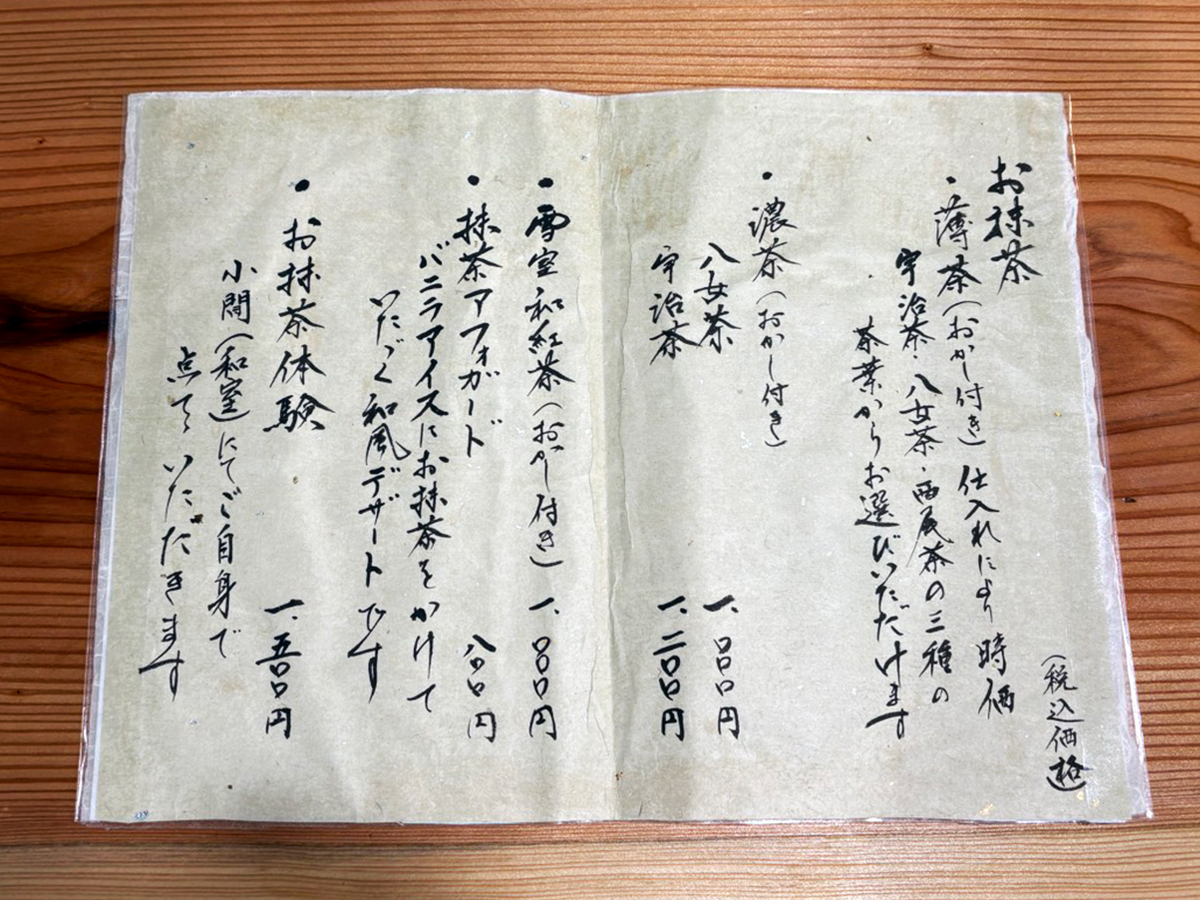 (税込価格)
お抹茶
・薄茶(おかし付き) 仕入れにより 時価
宇治茶・八女茶・西尾茶の三種の
茶葉からお選びいただけます
・濃茶(おかし付き)
八女茶 一、〇〇〇円
宇治茶 一、二〇〇円
・雪室和紅茶(おかし付き) 一、〇〇〇円
・抹茶アフォガード 八〇〇円
バニラアイスにお抹茶をかけて
いただく和風デザートです
・お抹茶体験 一、五〇〇円
小間(和室)にてご自身で
点てていただきます